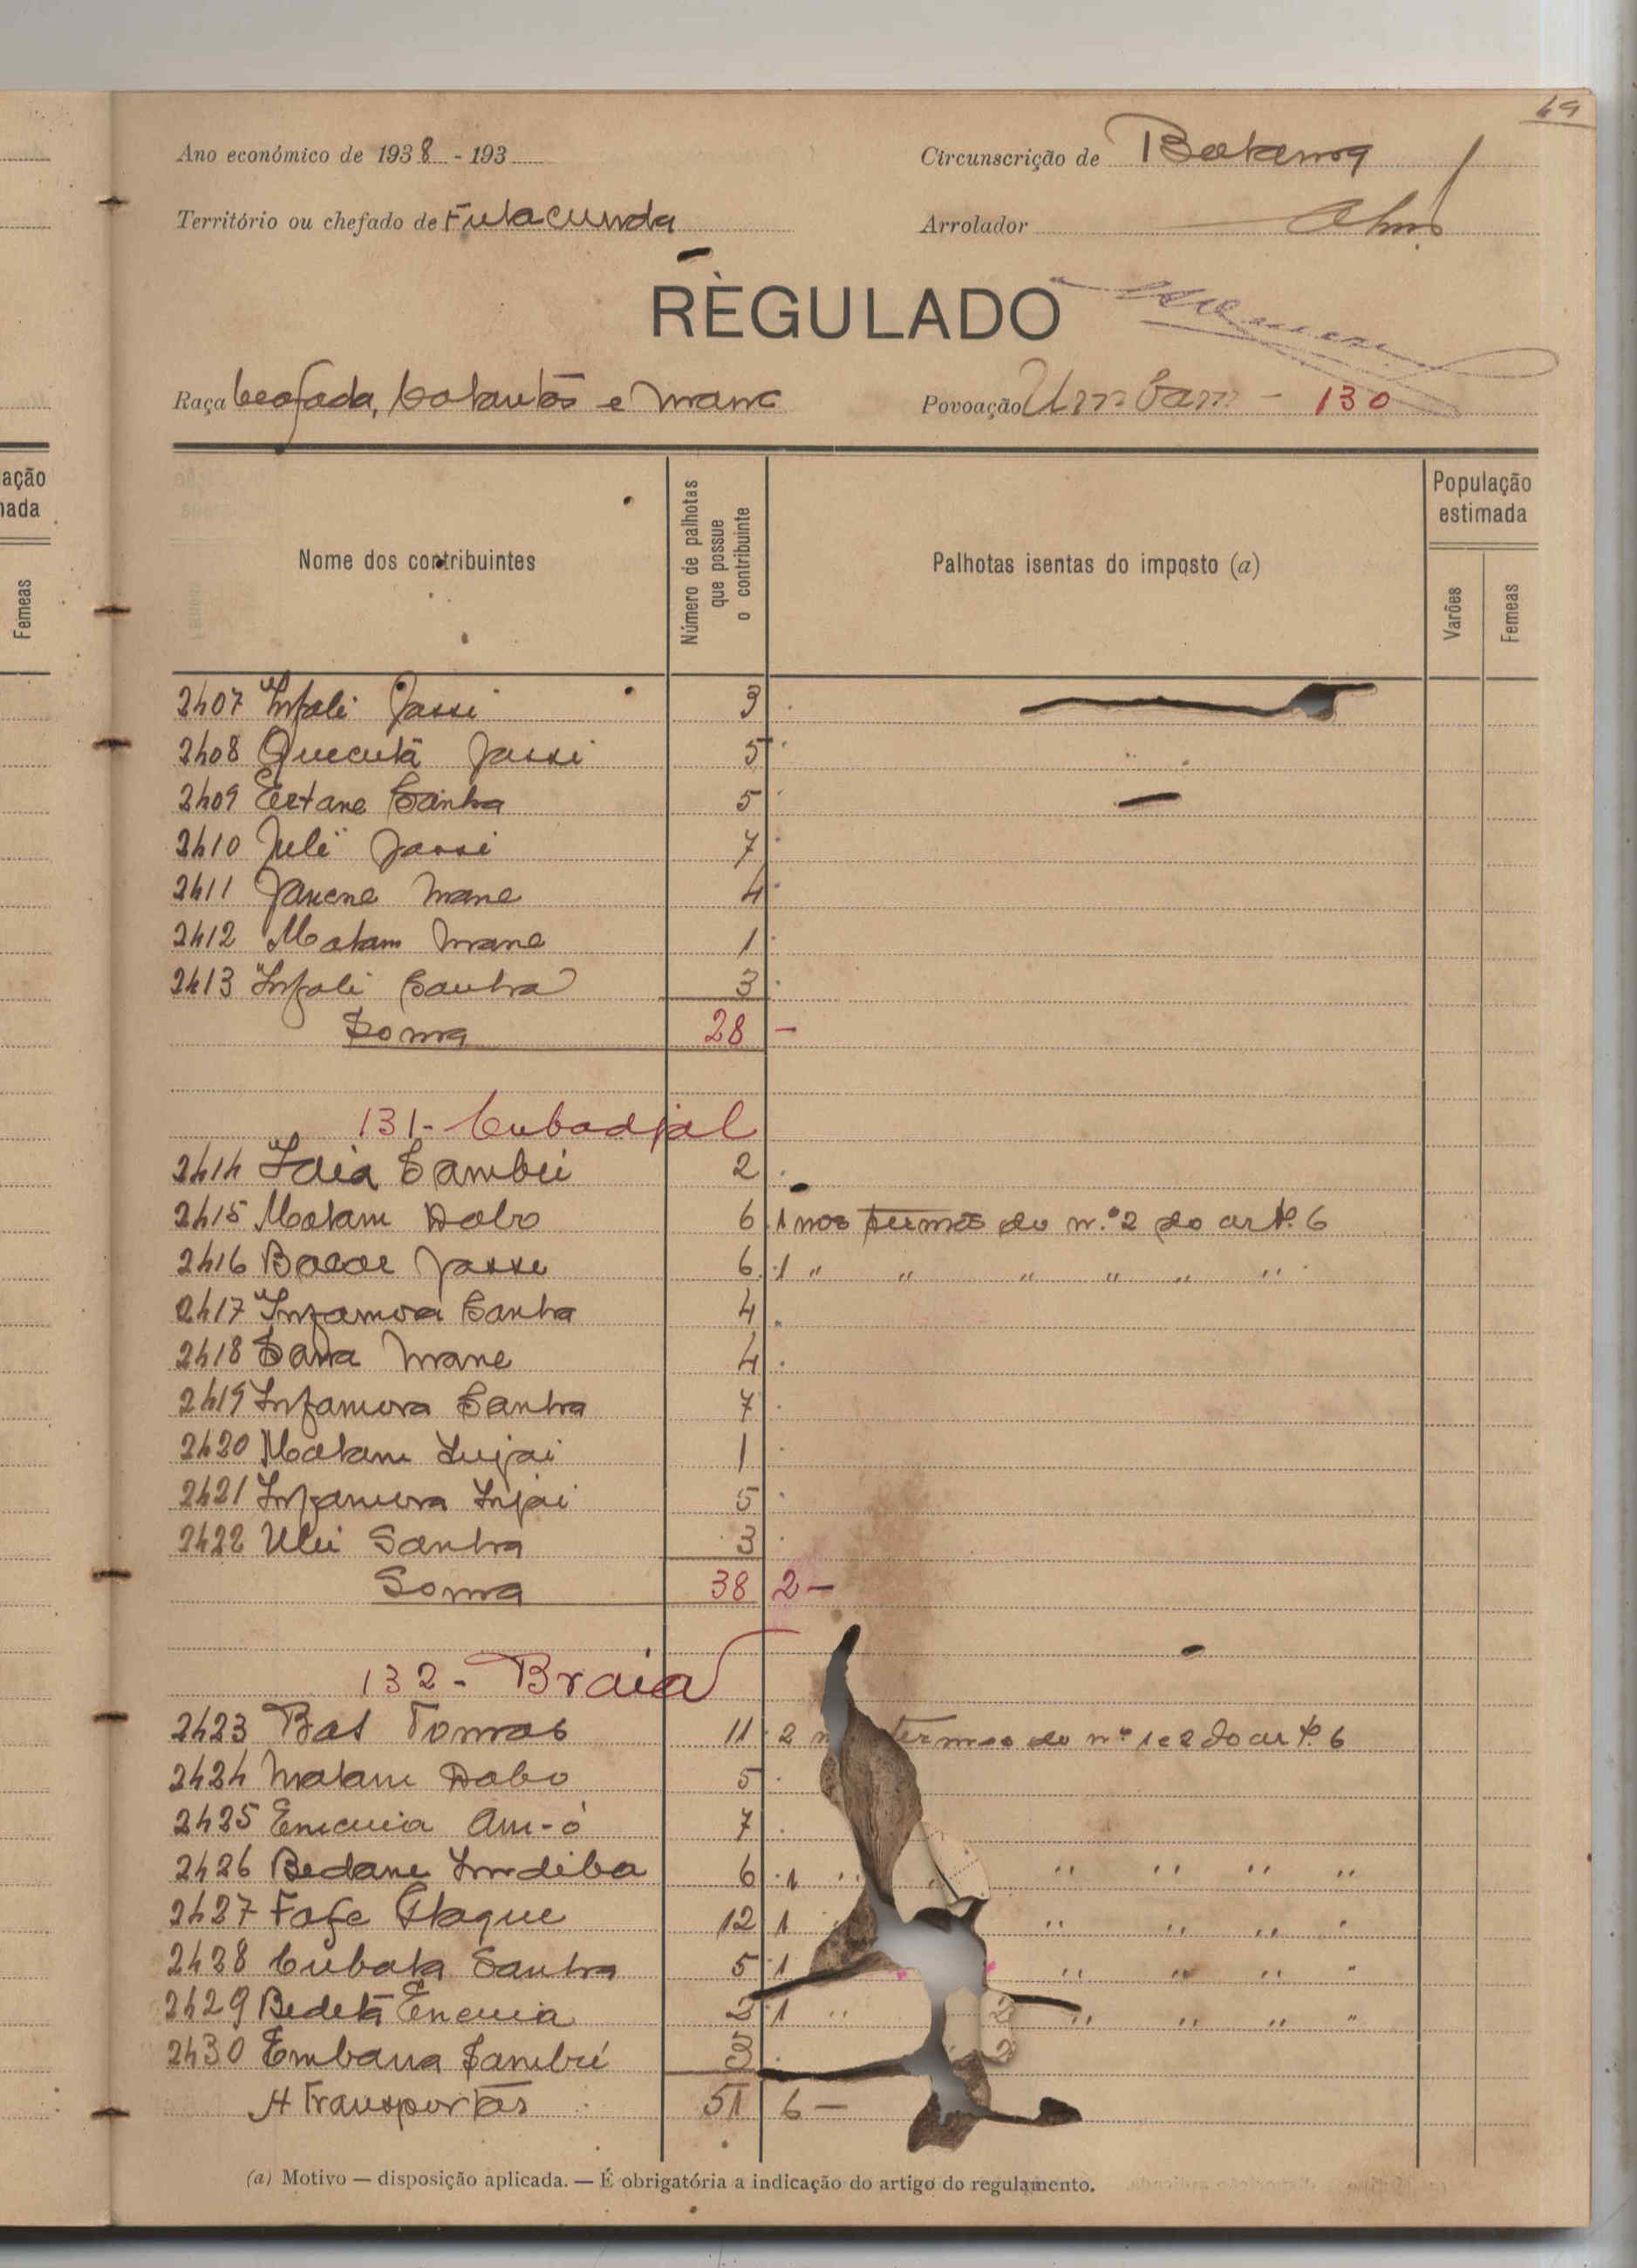 49
Ano económico de 1938 - 193
Circunscrição de
Território ou chefado de Fulacunda
Arrolador
REGULADO
Raça beafada, e mane
Povoação - 130
Nome dos contribuintes
Número de palhotas que possue o contribuinte
Palhotas isentas do imposto (a)
População estimada
Varões
Femeas
2407 Infali Jassi 3
2408 Quecutá Jassi 5
2409 Sanha 5
2410 Juli Jassi 7
2411 Mane 4
2412 Malam Mane 1
2413 Infali Sanha 3
Soma 28 -
131 - Cubadjal
2414 Iaia Cambei 2
2415 Malam Dabo 6 1 nos termos do n.º 2 do artº. 6
2416 Bacar Jassi 6 1 " " " " " "
2417 Infamora Sanha 4
2418 Sana Mane 4
2419 Infamora Sanha 7
2420 Malam Injai 1
2421 Infamora Injai 5
2422 Sanha 3
Soma 38 2 -
132 - Braia
2423 Bat Tomas 11 2 termos do nº 1 e 2 do artº. 6
2424 Malam Dabo 5
2425 7
2426 Bedane Indiba 6 1 " " " " "
2427 Fafe 12 1 " " " "
2428 Cubata Sanha 5 1 " " " "
2429 Bedetá Encuia 2 1 " " " " "
2430 Embana Sambú 3
A Transportar 51 6 -
(a) Motivo — disposição aplicada. — É obrigatória a indicação do artigo do regulamento.
ação
ada
Femeas